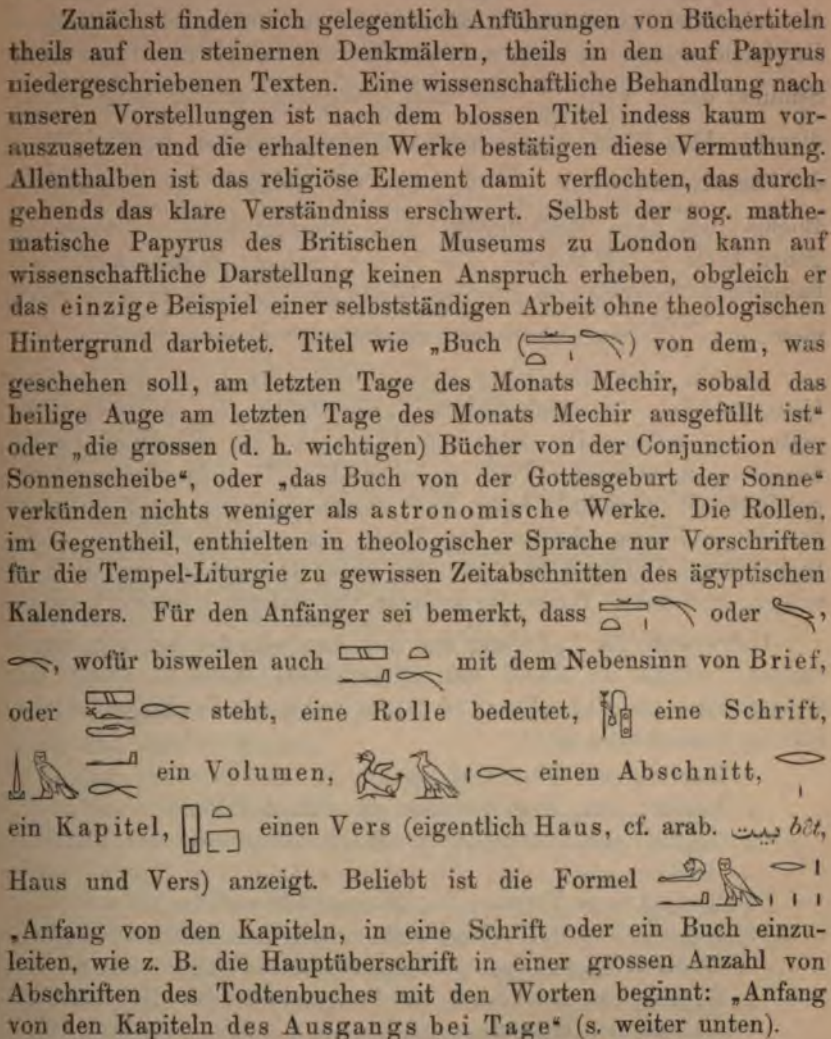 Zunächst finden sich gelegentlich Anführungen von Büchertiteln
theils auf den steinernen Denkmälern, theils in den auf Papyrus
niedergeschriebenen Texten. Eine wissenschaftliche Behandlung nach
unseren Vorstellungen ist nach dem blossen Titel indess kaum vor-
auszusetzen und die erhaltenen Werke bestätigen diese Vermuthung.
Allenthalben ist das religiöse Element damit verflochten, das durch-
gehends das klare Verständniss erschwert. Selbst der sog. mathe-
matische Papyrus des Britischen Museums zu London kann auf
wissenschaftliche Darstellung keinen Anspruch erheben, obgleich er
das einzige Beispiel einer selbstständigen Arbeit ohne theologischen
Hintergrund darbietet. Titel wie „Buch () von dem, was
geschehen soll, am letzten Tage des Monats Mechir, sobald das
heilige Auge am letzten Tage des Monats Mechir ausgefüllt ist“
oder „die grossen (d. h. wichtigen) Bücher von der Conjunction der
Sonnenscheibe“, oder „das Buch von der Gottesgeburt der Sonne“
verkünden nichts weniger als astronomische Werke. Die Rollen,
im Gegentheil, enthielten in theologischer Sprache nur Vorschriften
für die Tempel-Liturgie zu gewissen Zeitabschnitten des ägyptischen
Kalenders. Für den Anfänger sei bemerkt, dass oder ,
, wofür bisweilen auch mit dem Nebensinn von Brief,
oder steht, eine Rolle bedeutet, eine Schrift,
ein Volumen, einen Abschnitt,
ein Kapitel, einen Vers (eigentlich Haus, cf. arab. بيت bêt,
Haus und Vers) anzeigt. Beliebt ist die Formel
„Anfang von den Kapiteln, in eine Schrift oder ein Buch einzu-
leiten, wie z. B. die Hauptüberschrift in einer grossen Anzahl von
Abschriften des Todtenbuches mit den Worten beginnt: „Anfang
von den Kapiteln des Ausgangs bei Tage“ (s. weiter unten).